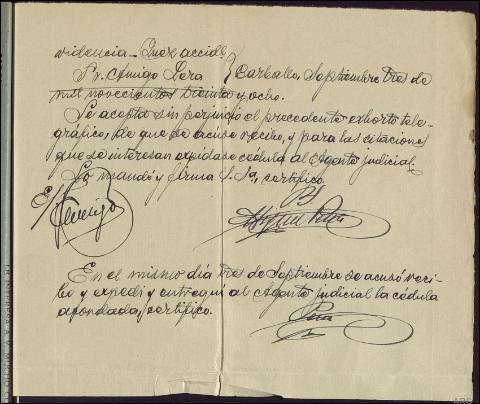 videncia - Juez accidl.
Sr. Amigo Pera } Carballo, Septiembre tres de
mil novecientos treinta y ocho.
Se acepta sin perjuicio el precedente exhorto tele-
gráfico, de que se acuse recibo, y para las citaciones
que se interesan expídase cédula al Agente judicial.
Lo mandó y firma S. Sª, certifico.
E/
En el mismo día tres de Septiembre se acusó reci-
bo y expedí y entregué al Agente judicial la cédula
acordada, certifico.